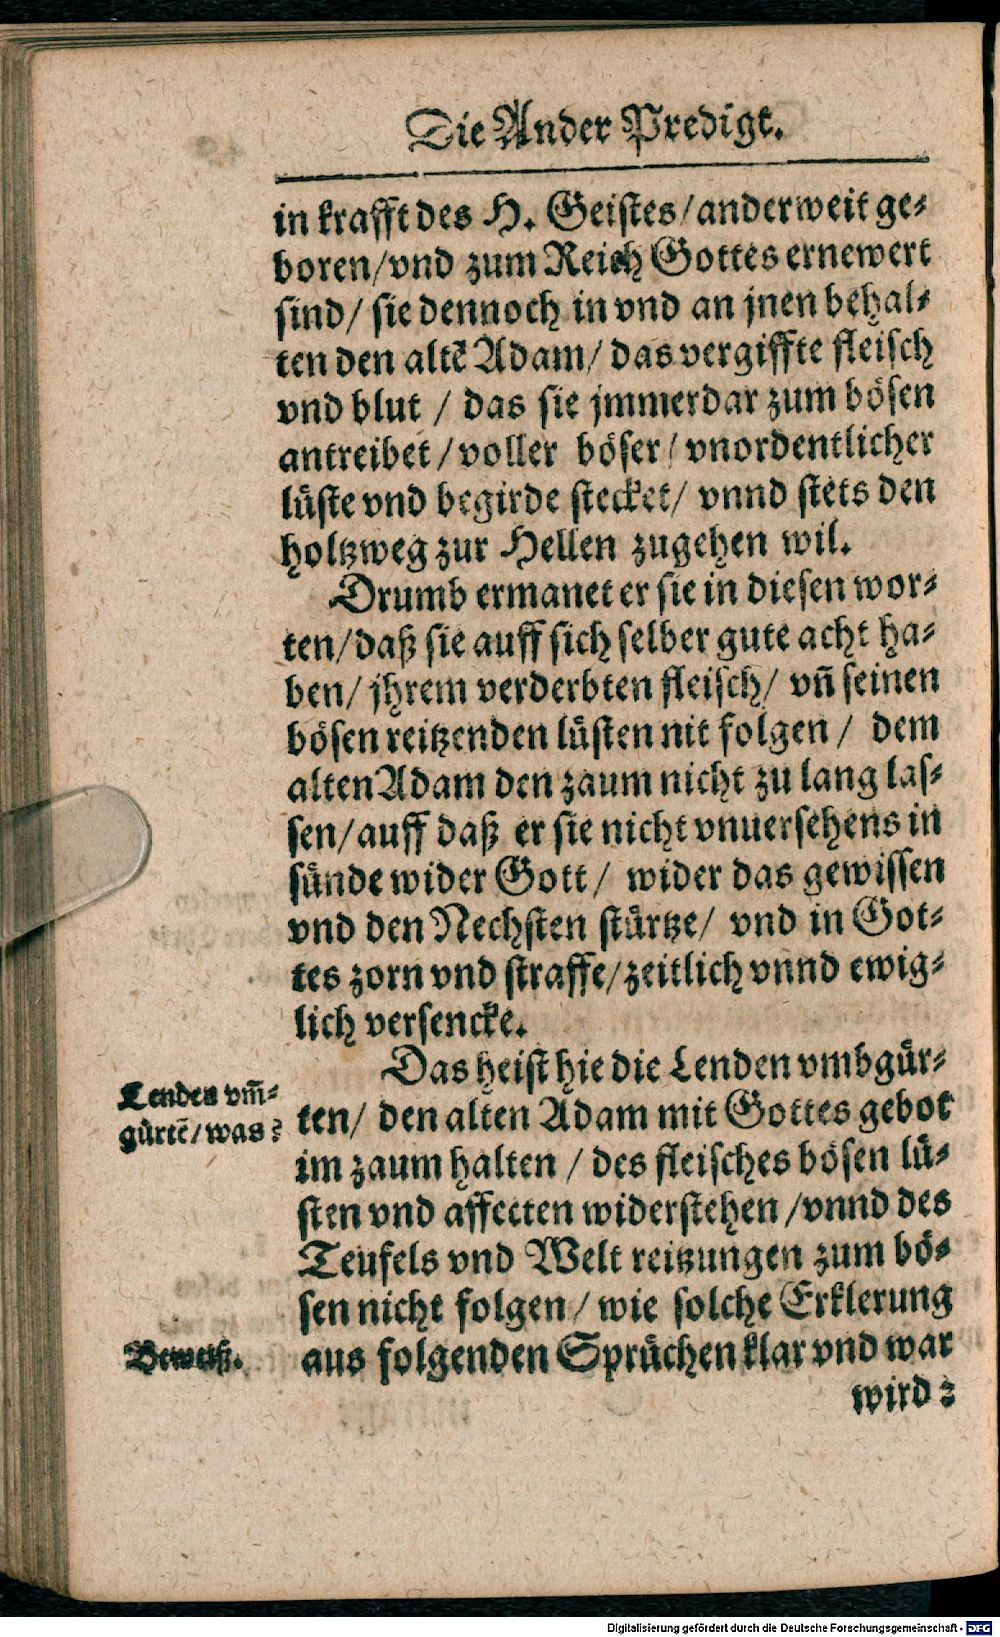 Die Ander Predigt.
in krafft des H. Geistes/anderweit ge-
boren/vnd zum Reich Gottes ernewert
sind/ sie dennoch in vnd an jnen behal-
ten den altẽ Adam/ das vergiffte fleisch
vnd blut / das sie jmmerdar zum bösen
antreibet/voller böser/vnordentlicher
lüste vnd begirde stecket/ vnnd stets den
holtzweg zur Hellen zugehen wil.
Drumb ermanet er sie in diesen wor-
ten/daß sie auff sich selber gute acht ha-
ben/ jhrem verderbten fleisch/ vñ seinen
bösen reitzenden lüsten nit folgen/ dem
alten Adam den zaum nicht zu lang las-
sen/auff daß er sie nicht vnuersehens in
sünde wider Gott/ wider das gewissen
vnd den Nechsten stürtze/ vnd in Got-
tes zorn vnd straffe/zeitlich vnnd ewig-
lich versencke.
Das heist hie die Lenden vmbgür-
Lenden vm̃-
gürtẽ/was?
ten/ den alten Adam mit Gottes gebot
im zaum halten / des fleisches bösen lü-
sten vnd affecten widerstehen /vnnd des
Teufels vnd Welt reitzungen zum bö-
sen nicht folgen/ wie solche Erklerung
Beweiß.
aus folgenden Sprüchen klar vnd war
wird:
Digitalisierung gefördert durch die Deutsche Forschungsgemeinschaft - DFG